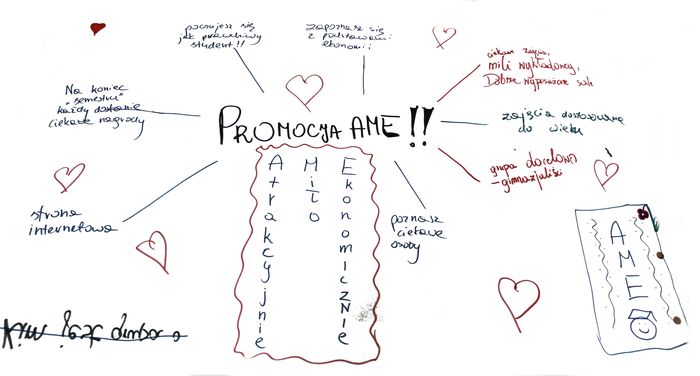 poczujesz się
jak prawdziwy
student!!
zapoznasz się
z podstawami
ekonomii
ciekawe zajęcia,
mili wykładowcy,
Dobrze wyposażone sale
Na koniec
"semestru"
każdy dostanie
ciekawe nagrody
PROMOCJA AME!!
zajęcia dostosowane
do wieku
grupa docelowa
- gimnazjaliści
strona
internetowa
poznasz
ciekawe
osoby
Atrakcyjnie
Miło
Ekonomicznie
AME